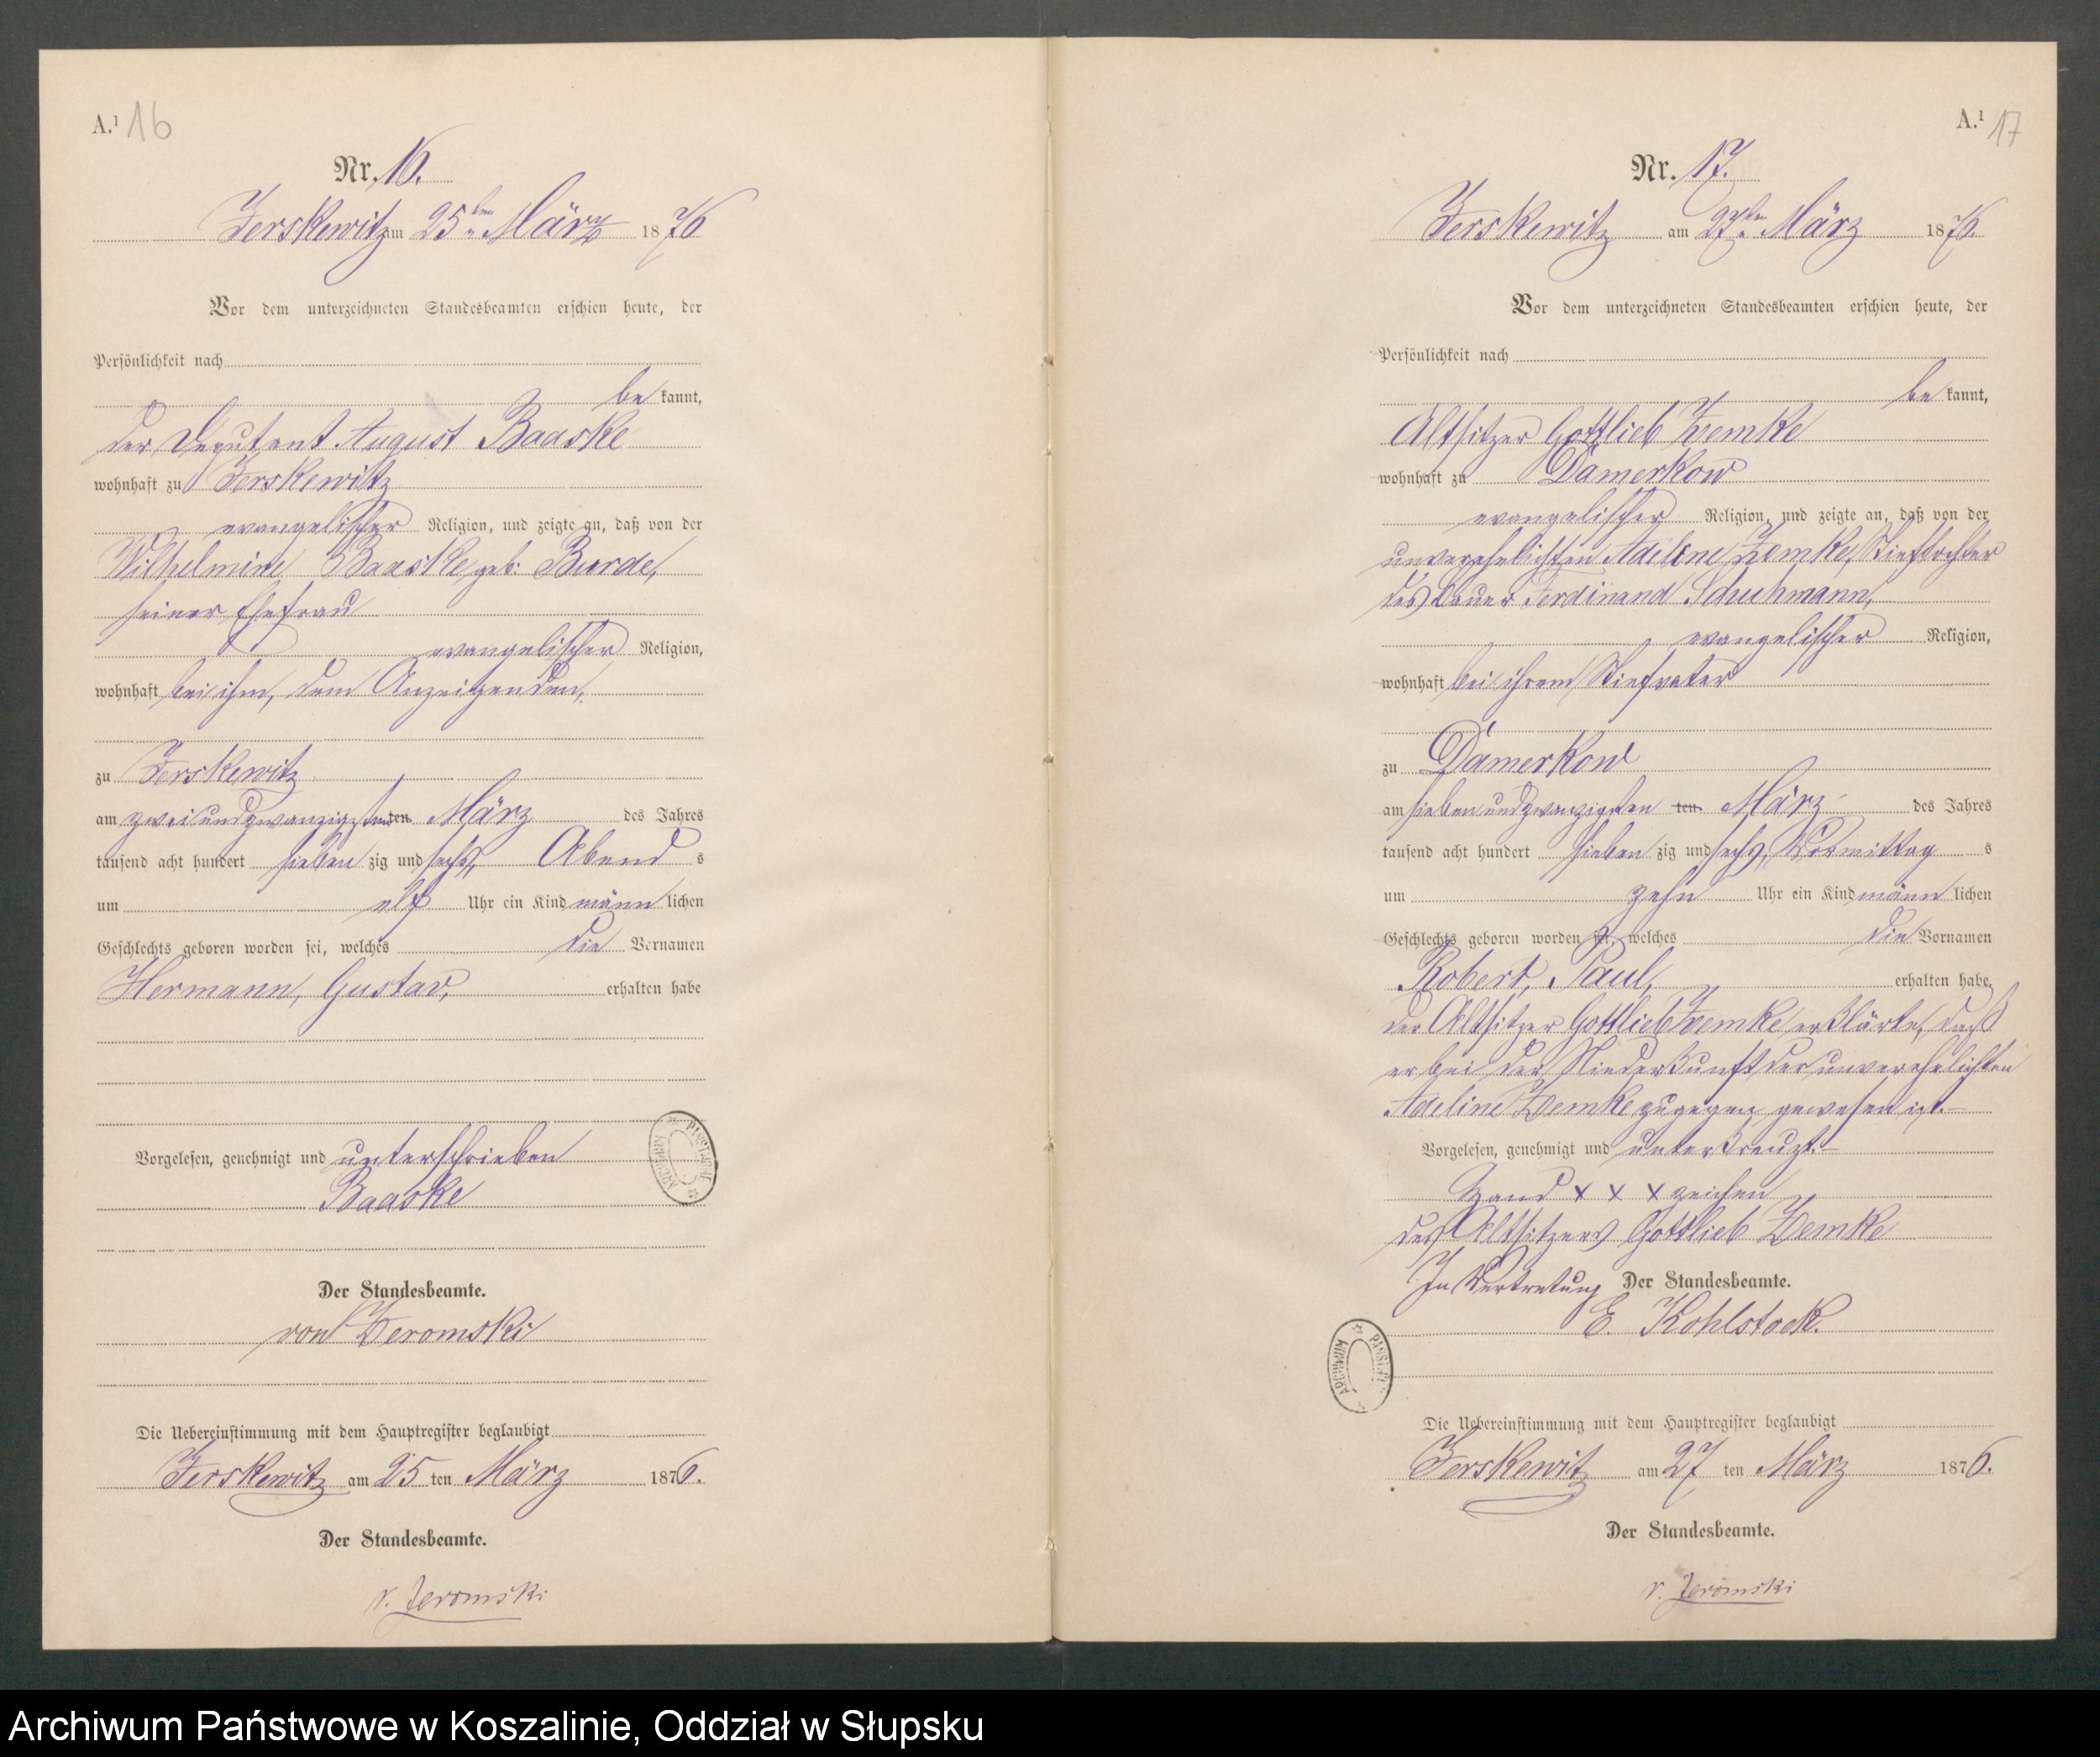 A.¹ 16
Nr. 16.
Jerskewitz am 25ten März 1876
Vor dem unterzeichneten Standesbeamten erschien heute, der
Persönlichkeit nach
be kannt,
der Deputant August Baaske
wohnhaft zu Jerskewitz
evangelischer Religion, und zeigte an, daß von der
Wilhelmine Baaske geb: Burde,
seiner Ehefrau
evangelischer Religion,
wohnhaft bei ihm, dem Anzeigenden,
zu Jerskewitz
am zweiundzwanzigsten ten März des Jahres
tausend acht hundert sieben zig und sechs, Abend s
um elf Uhr ein Kind männ lichen
Geschlechts geboren worden sei, welches die Vornamen
Hermann, Gustav, erhalten habe
Vorgelesen, genehmigt und unterschrieben
Baaske
ARCHIWUM PAŃSTWOWE
Der Standesbeamte.
von Zeromski
Die Uebereinstimmung mit dem Hauptregister beglaubigt
Jerskewitz am 25 ten März 1876.
Der Standesbeamte.
v. Zeromski
A.¹ 17
Nr. 17.
Jerskewitz am 27ten März 1876.
Vor dem unterzeichneten Standesbeamten erschien heute, der
Persönlichkeit nach
be kannt,
Altsitzer Gottlieb Zemke
wohnhaft zu Damerkow
evangelischer Religion, und zeigte an, daß von der
unverehelichten Adeline Zemke, Stieftochter
des Bauer Ferdinand Schuhmann,
evangelischer Religion,
wohnhaft bei ihrem Stiefvater
zu Damerkow
am siebenundzwanzigsten ten März des Jahres
tausend acht hundert sieben zig und sechs, Vormittag s
um zehn Uhr ein Kind männ lichen
Geschlechts geboren worden sei, welches die Vornamen
Robert, Paul, erhalten habe,
der Altsitzer Gottlieb Zemke erklärte, daß
er bei der Niederkunft der unverehelichten
Adeline Zemke zugegen gewesen ist.
Vorgelesen, genehmigt und unterkreuzt.
Hand x x x zeichen
des Altsitzers Gottlieb Zemke
In Vertretung Der Standesbeamte.
E. Kohlstock.
ARCHIWUM PAŃSTW
Die Uebereinstimmung mit dem Hauptregister beglaubigt
Jerskewitz am 27 ten März 1876.
Der Standesbeamte.
v. Zeromski
Archiwum Państwowe w Koszalinie, Oddział w Słupsku